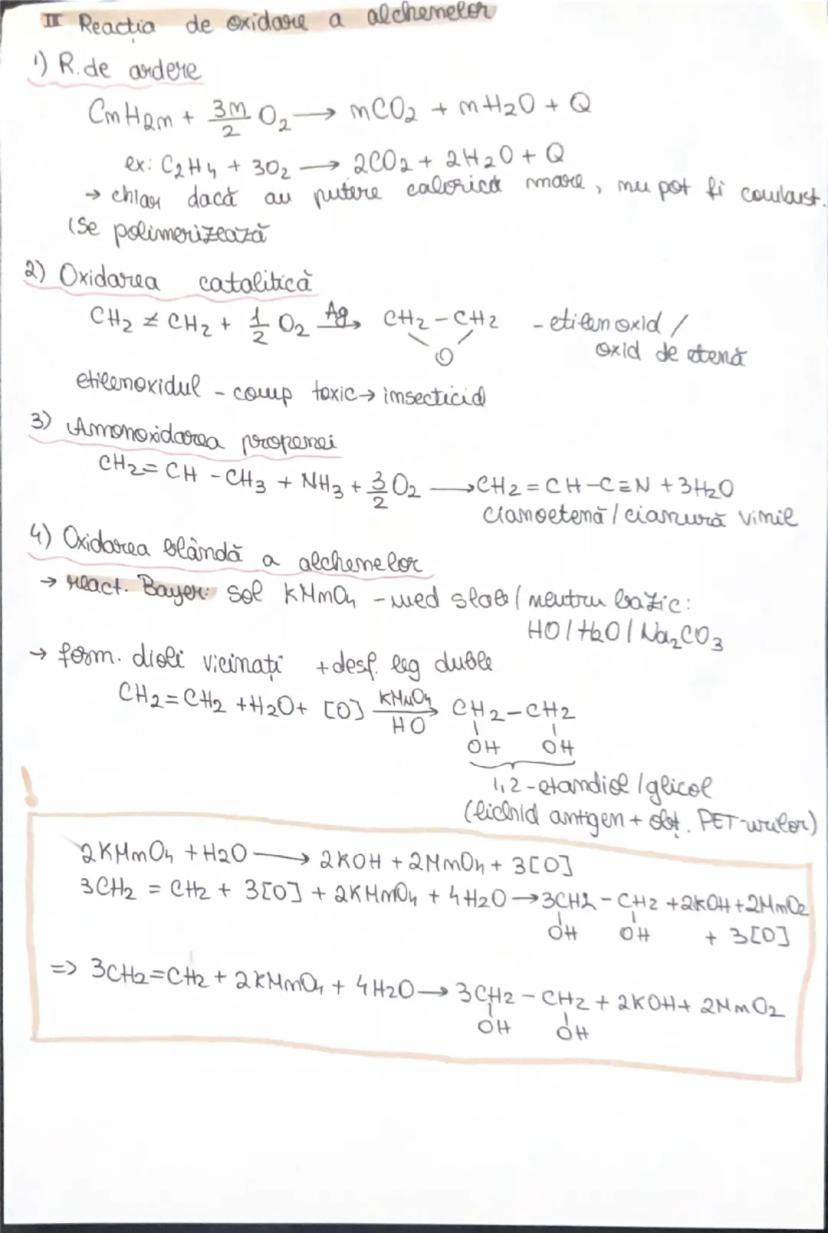 II Reacția de oxidare a alchenelor
1) R. de ardere
CnH2n + 3n/2 O2 → nCO2 + nH2O + Q
ex: C2H4 + 3O2 → 2CO2 + 2H2O + Q
→ chiar dacă au putere calorică mare, nu pot fi combust.
(se polimerizează
2) Oxidarea catalitică
CH2 ≠ CH2 + 1/2 O2 Ag→ CH2 – CH2 - etilenoxid /
O oxid de etenă
etilenoxidul - comp toxic → insecticid
3) Amonoxidarea propenei
CH2 = CH – CH3 + NH3 + 3/2 O2 → CH2 = CH – C≡N + 3H2O
cianoetenă / cianură vinil
4) Oxidarea blândă a alchenelor
→ react. Bayer: sol KMnO4 - med slab / neutru bazic:
HO / H2O / Na2CO3
→ form. dioli vicinați + desf. leg duble
CH2 = CH2 + H2O + [O] KMnO4→ CH2 – CH2
HO OH OH
1,2-etandiol / glicol
(lichid antigen + obț. PET-urilor)
!
2KMnO4 + H2O → 2KOH + 2MnO4 + 3[O]
3CH2 = CH2 + 3[O] + 2KMnO4 + 4H2O → 3CH2 – CH2 + 2KOH + 2MnO2
OH OH + 3[O]
=> 3CH2 = CH2 + 2KMnO4 + 4H2O → 3CH2 – CH2 + 2KOH + 2MnO2
OH OH